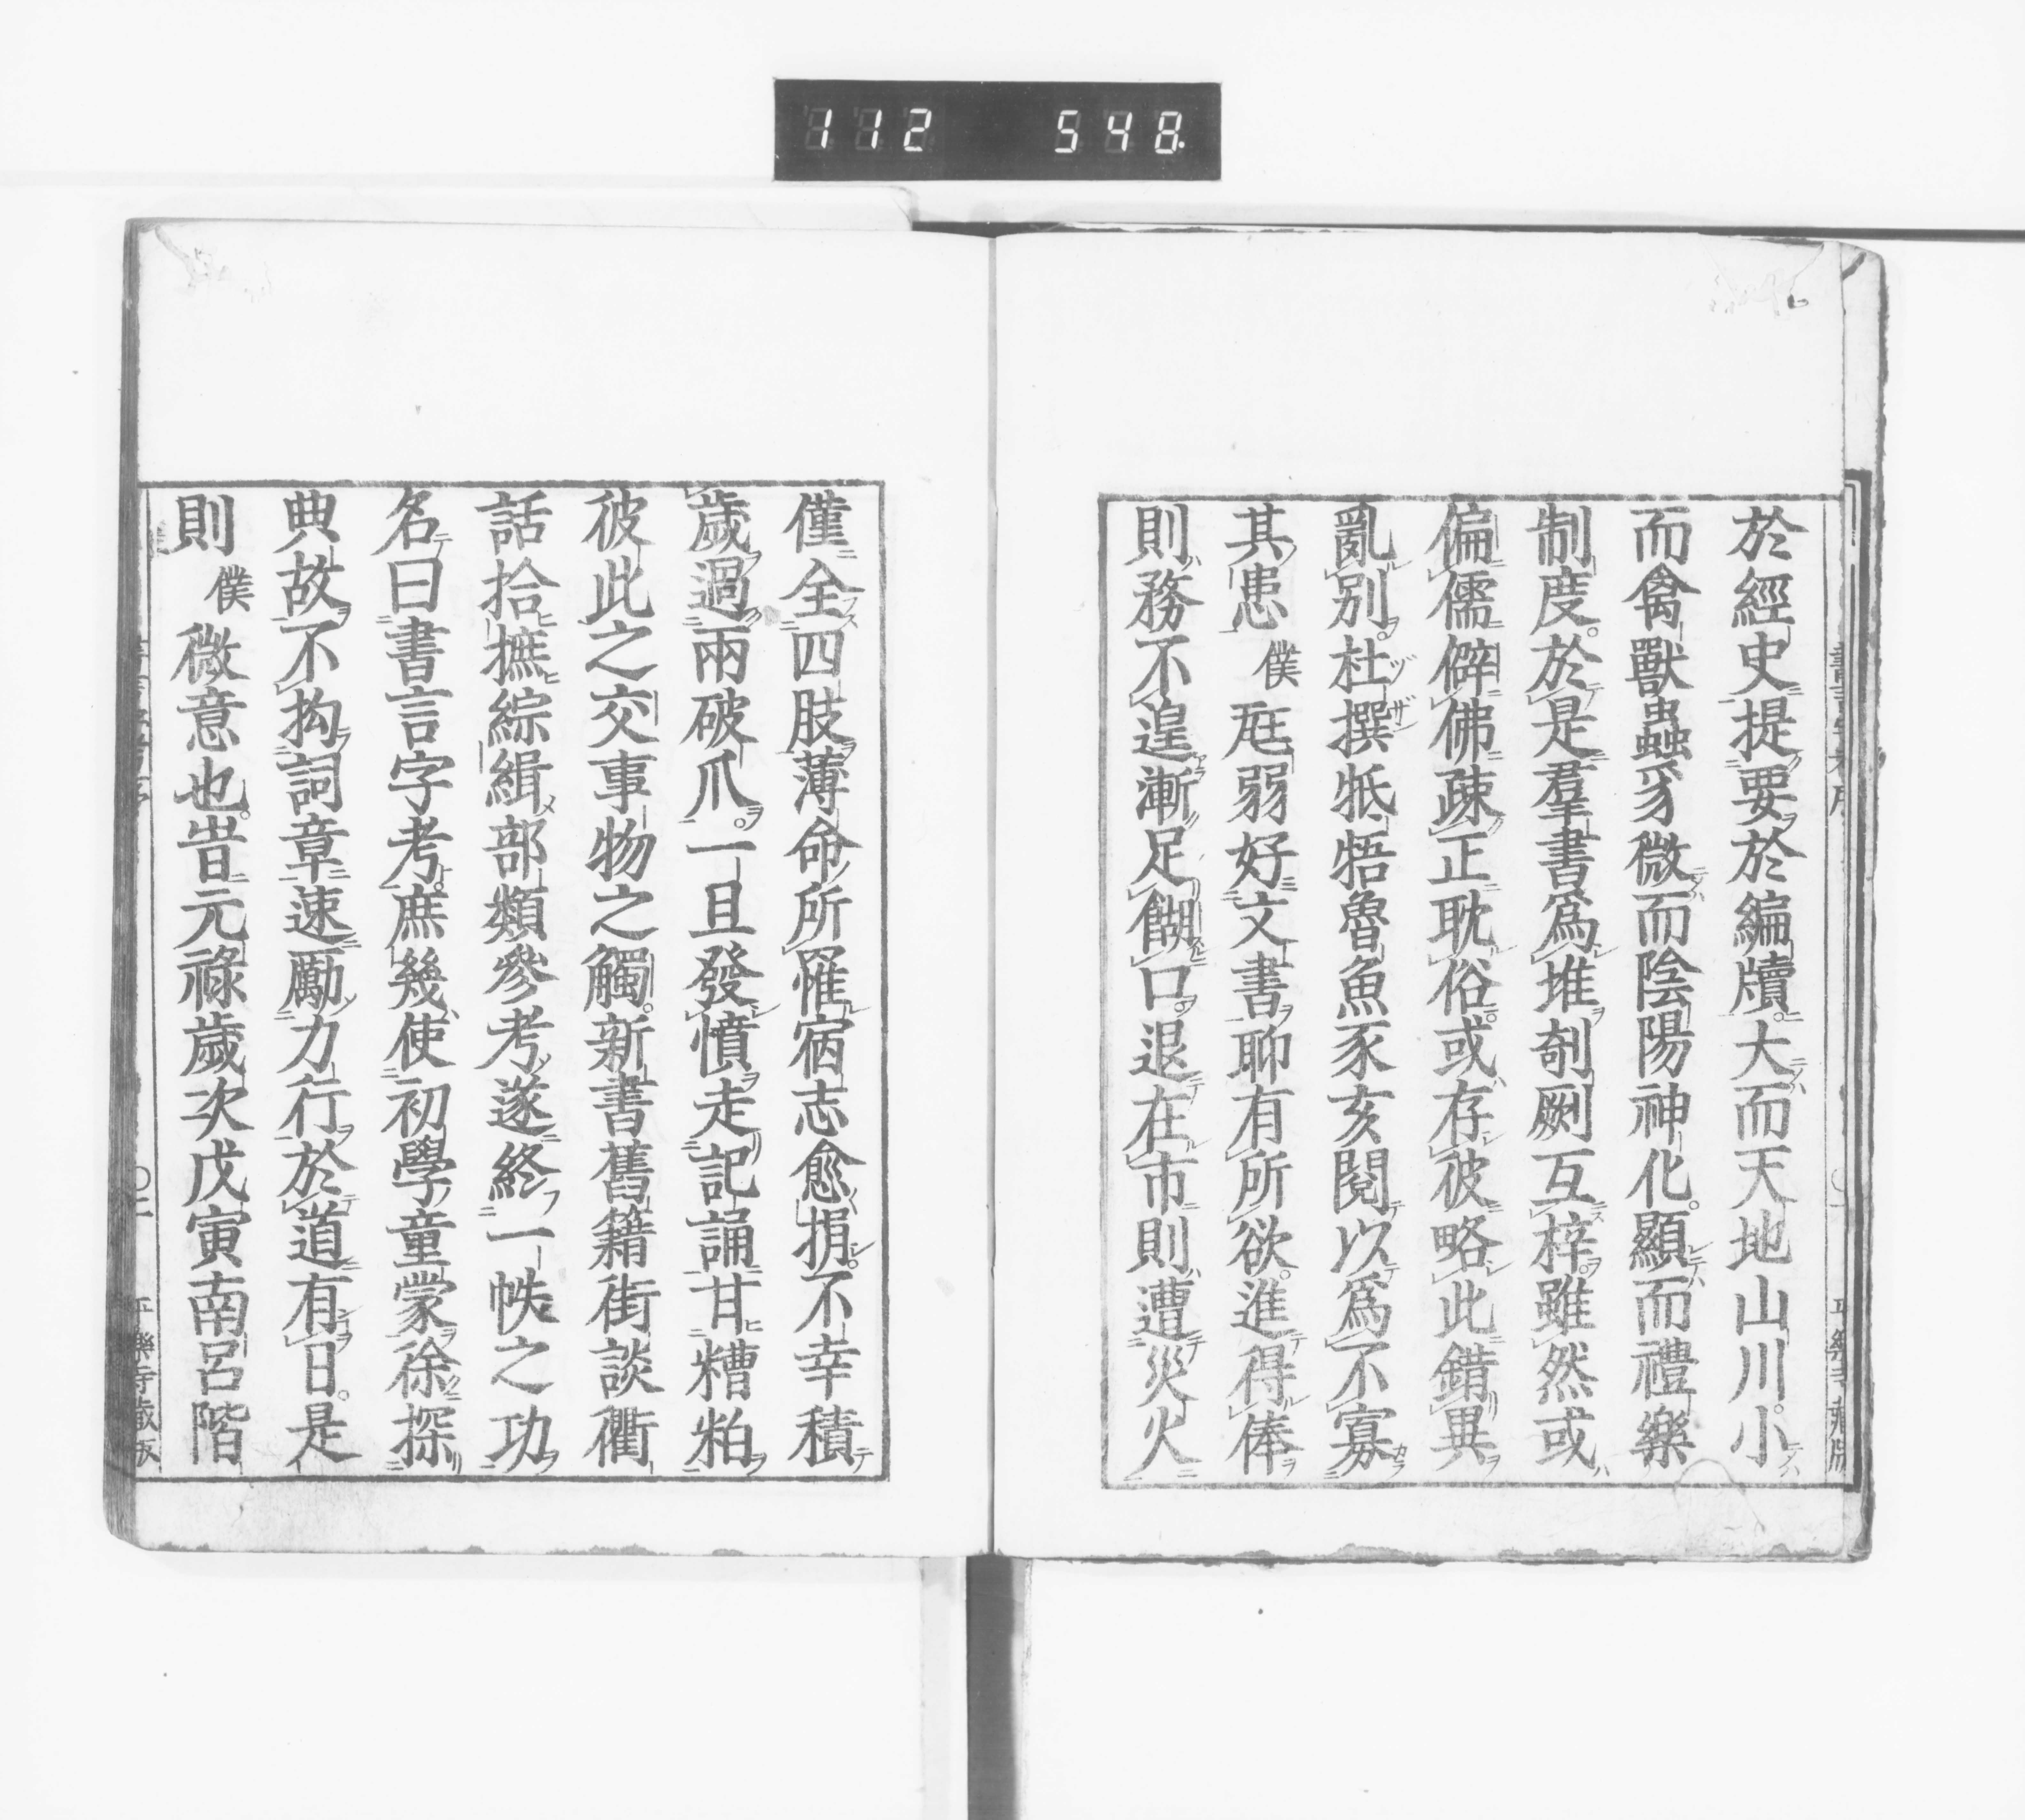 112 548.
於經史提要於編牘。大而天地山川。小
而禽獸蟲豸微而陰陽神化。顯而禮樂
制度。於是羣書爲堆剞劂互梓。雖然或
偏儒僻佛疎正耽俗。或存彼略此錯異
亂別。杜撰牴牾魯魚豕亥閱以爲不寡
其患僕尫弱好文書聊有所欲。進得俸
則務不遑漸足餬口。退在市則遭災火
僅全四肢薄命所罹宿志愈捐。不幸積
歲過兩破爪。一旦發憤走記誦甘糟粕
彼此之交事物之觸。新書舊籍街談衢
話拾摭綜緝部類參考遂終一帙之功
名曰書言字考。庶幾使初學童蒙徐探
典故不拘詞章速勵力行於道有日。是
則僕微意也。旹元祿歲次戊寅南呂階